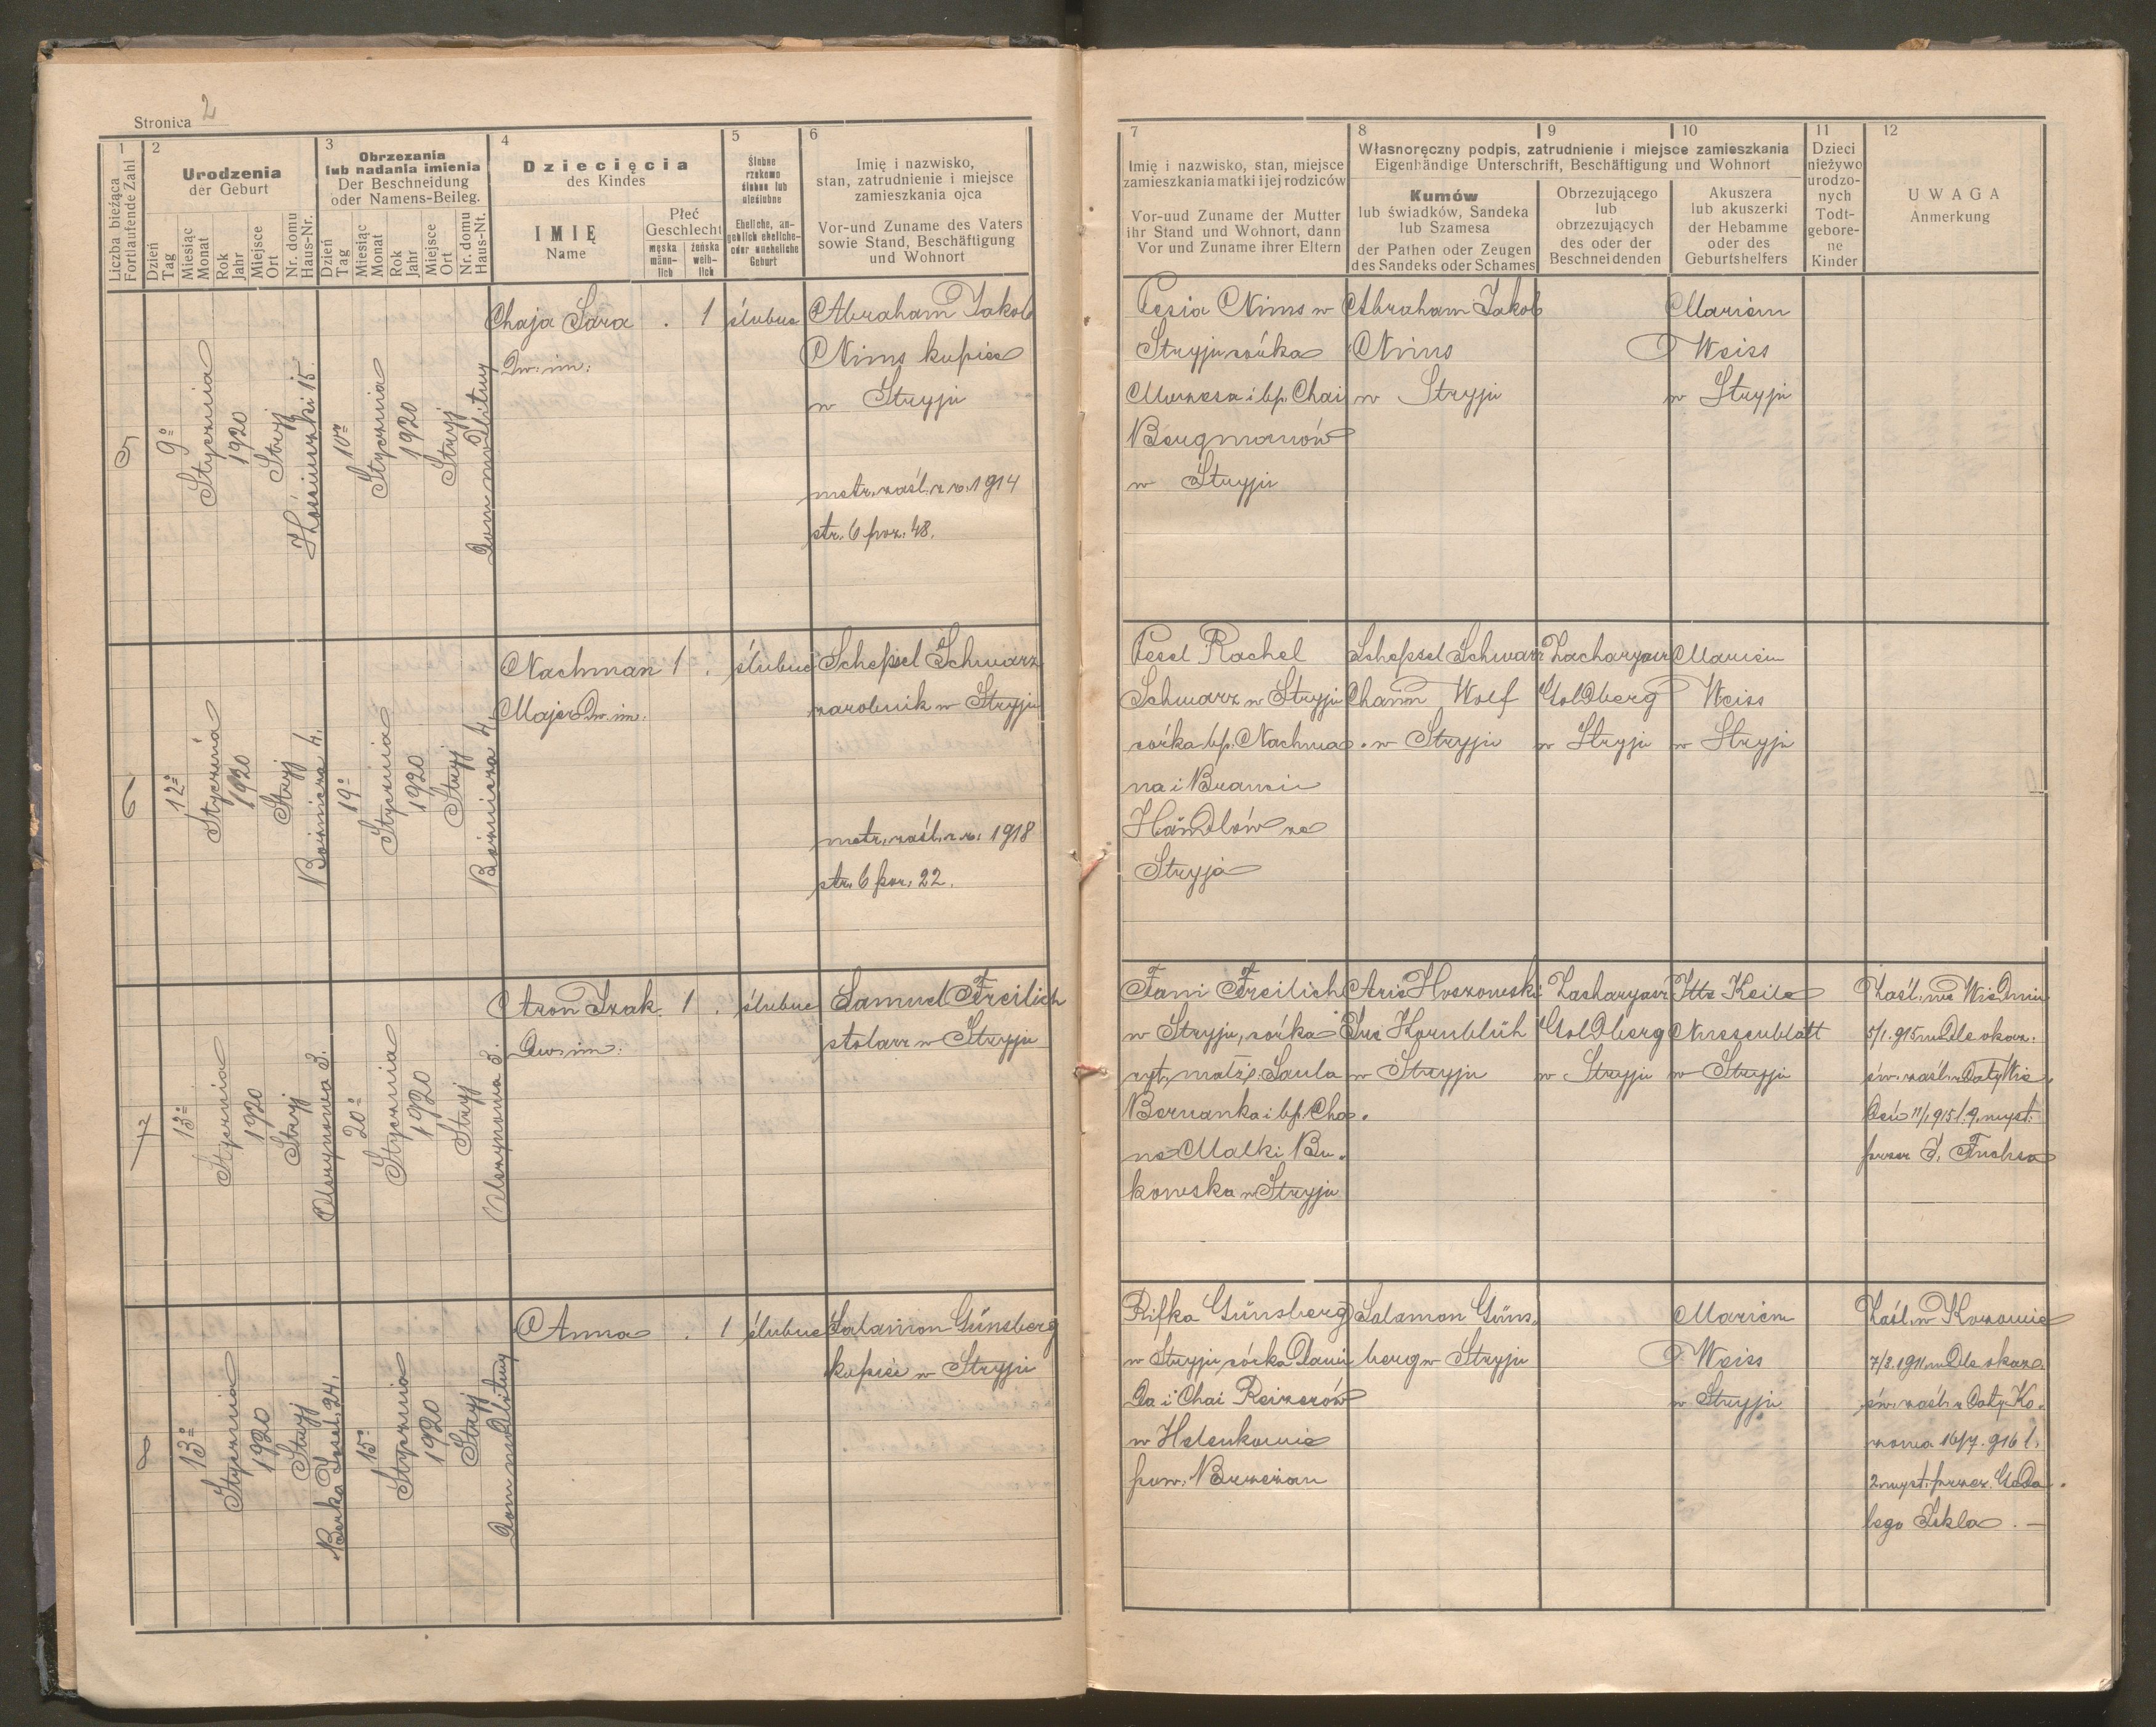 Stronica 2
1
Liczba bieżąca
Fortlaufende Zahl
2
Urodzenia
der Geburt
Dzień
Tag
Miesiąc
Monat
Rok
Jahr
Miejsce
Ort
Nr. domu
Haus-Nr.
3
Obrzezania
lub nadania imienia
Der Beschneidung
oder Namens-Beileg.
Dzień
Tag
Miesiąc
Monat
Rok
Jahr
Miejsce
Ort
Nr. domu
Haus-Nt.
4
Dziecięcia
des Kindes
IMIĘ
Name
Płeć
Geschlecht
męska
männ-
lich
żeńska
weib-
lich
5
Ślubne
rzekomo
ślubne lub
nieślubne
Eheliche, an-
geblich eheliche-
oder uneheliche
Geburt
6
Imię i nazwisko,
stan, zatrudnienie i miejsce
zamieszkania ojca
Vor-und Zuname des Vaters
sowie Stand, Beschäftigung
und Wohnort
7
Imię i nazwisko, stan, miejsce
zamieszkania matki i jej rodziców
Vor-uud Zuname der Mutter
ihr Stand und Wohnort, dann
Vor und Zuname ihrer Eltern
8
9
10
Własnoręczny podpis, zatrudnienie i miejsce zamieszkania
Eigenhändige Unterschrift, Beschäftigung und Wohnort
Kumów
lub świadków, Sandeka
lub Szamesa
der Pathen oder Zeugen
des Sandeks oder Schames
Obrzezującego
lub
obrzezujących
des oder der
Beschneidenden
Akuszera
lub akuszerki
der Hebamme
oder des
Geburtshelfers
11
Dzieci
nieżywo
urodzo-
nych
Todt-
gebore-
ne
Kinder
12
UWAGA
Anmerkung
5
9º
Stycznia
1920
Stryj
Kościuszki 15.
10º
Stycznia
1920
Stryj
Dom modlitwy
Chaja Sara
Dw. im:
. 1
ślubne
Abraham Jakob
Nims kupiec
w Stryju
metr. zaśl. z r. 1914
str. 6 poz. 48.
Pesia Nims w
Stryju córka
Mozesa i bp. Chai
Bergmanów
w Stryju
Abraham Jakob
Nims
w Stryju
Mariem
Weiss
w Stryju
6
12º
Stycznia
1920
Stryj
Bożnicza 4.
19º
Stycznia
1920
Stryj
Bożnicza 4.
Nachman
Majer Dw. im:
1 .
ślubne
Schepsel Schwarz
zarobnik w Stryju
metr. zaśl. z r. 1918
str. 6 poz. 22.
Pesel Rachel
Schwarz w Stryju
córka bp. Nachma
na i Brancie
Händlów ze
Stryja
Schepsel Schwarz
Chaim Wolf
w Stryju
Zacharyasz
Goldberg
w Stryju
Mariem
Weiss
w Stryju
7
13º
Stycznia
1920
Stryj
3.
20º
Stycznia
1920
Stryj
3.
Aron Izak
Dw. im:
1 .
ślubne
Samuel Freilich
stolarz w Stryju
Fani Freilich
w Stryju, córka
ryt. małż. Saula
Bernanka i bp. Cha
ne Malki Bu.
kowska w Stryju
Arie Hoszowski
Kornblüh
w Stryju
Zacharyasz
Goldberg
w Stryju
Itte Keile
Nussenblatt
w Stryju
Zaśl. we Wiedniu
5/1. 915 wedle okaz.
św. zaśl. z daty Wie
deń 11/1 915 l. 9. wyst.
przez D. Fuchsa
8
13º
Stycznia
1920
Stryj
Berka Josel. 24.
15º
Stycznia
1920
Stryj
Dom modlitwy
Anna
. 1
ślubne
Salamon Günsberg
kupiec w Stryju
Rifka Günsberg
w Stryju córka Dawi
da i Chai Reizerów
w Helenkowie
pow. Brzeżan
Salamon Güns.
berg w Stryju
Mariem
Weiss
w Stryju
Zaśl. w Kozowie
7/3. 1911. wedle okaz.
św. zaśl. z daty Ko.
zowa 16/7. 916 l.
2 wyst. przez Geda.
lego Sekla. —